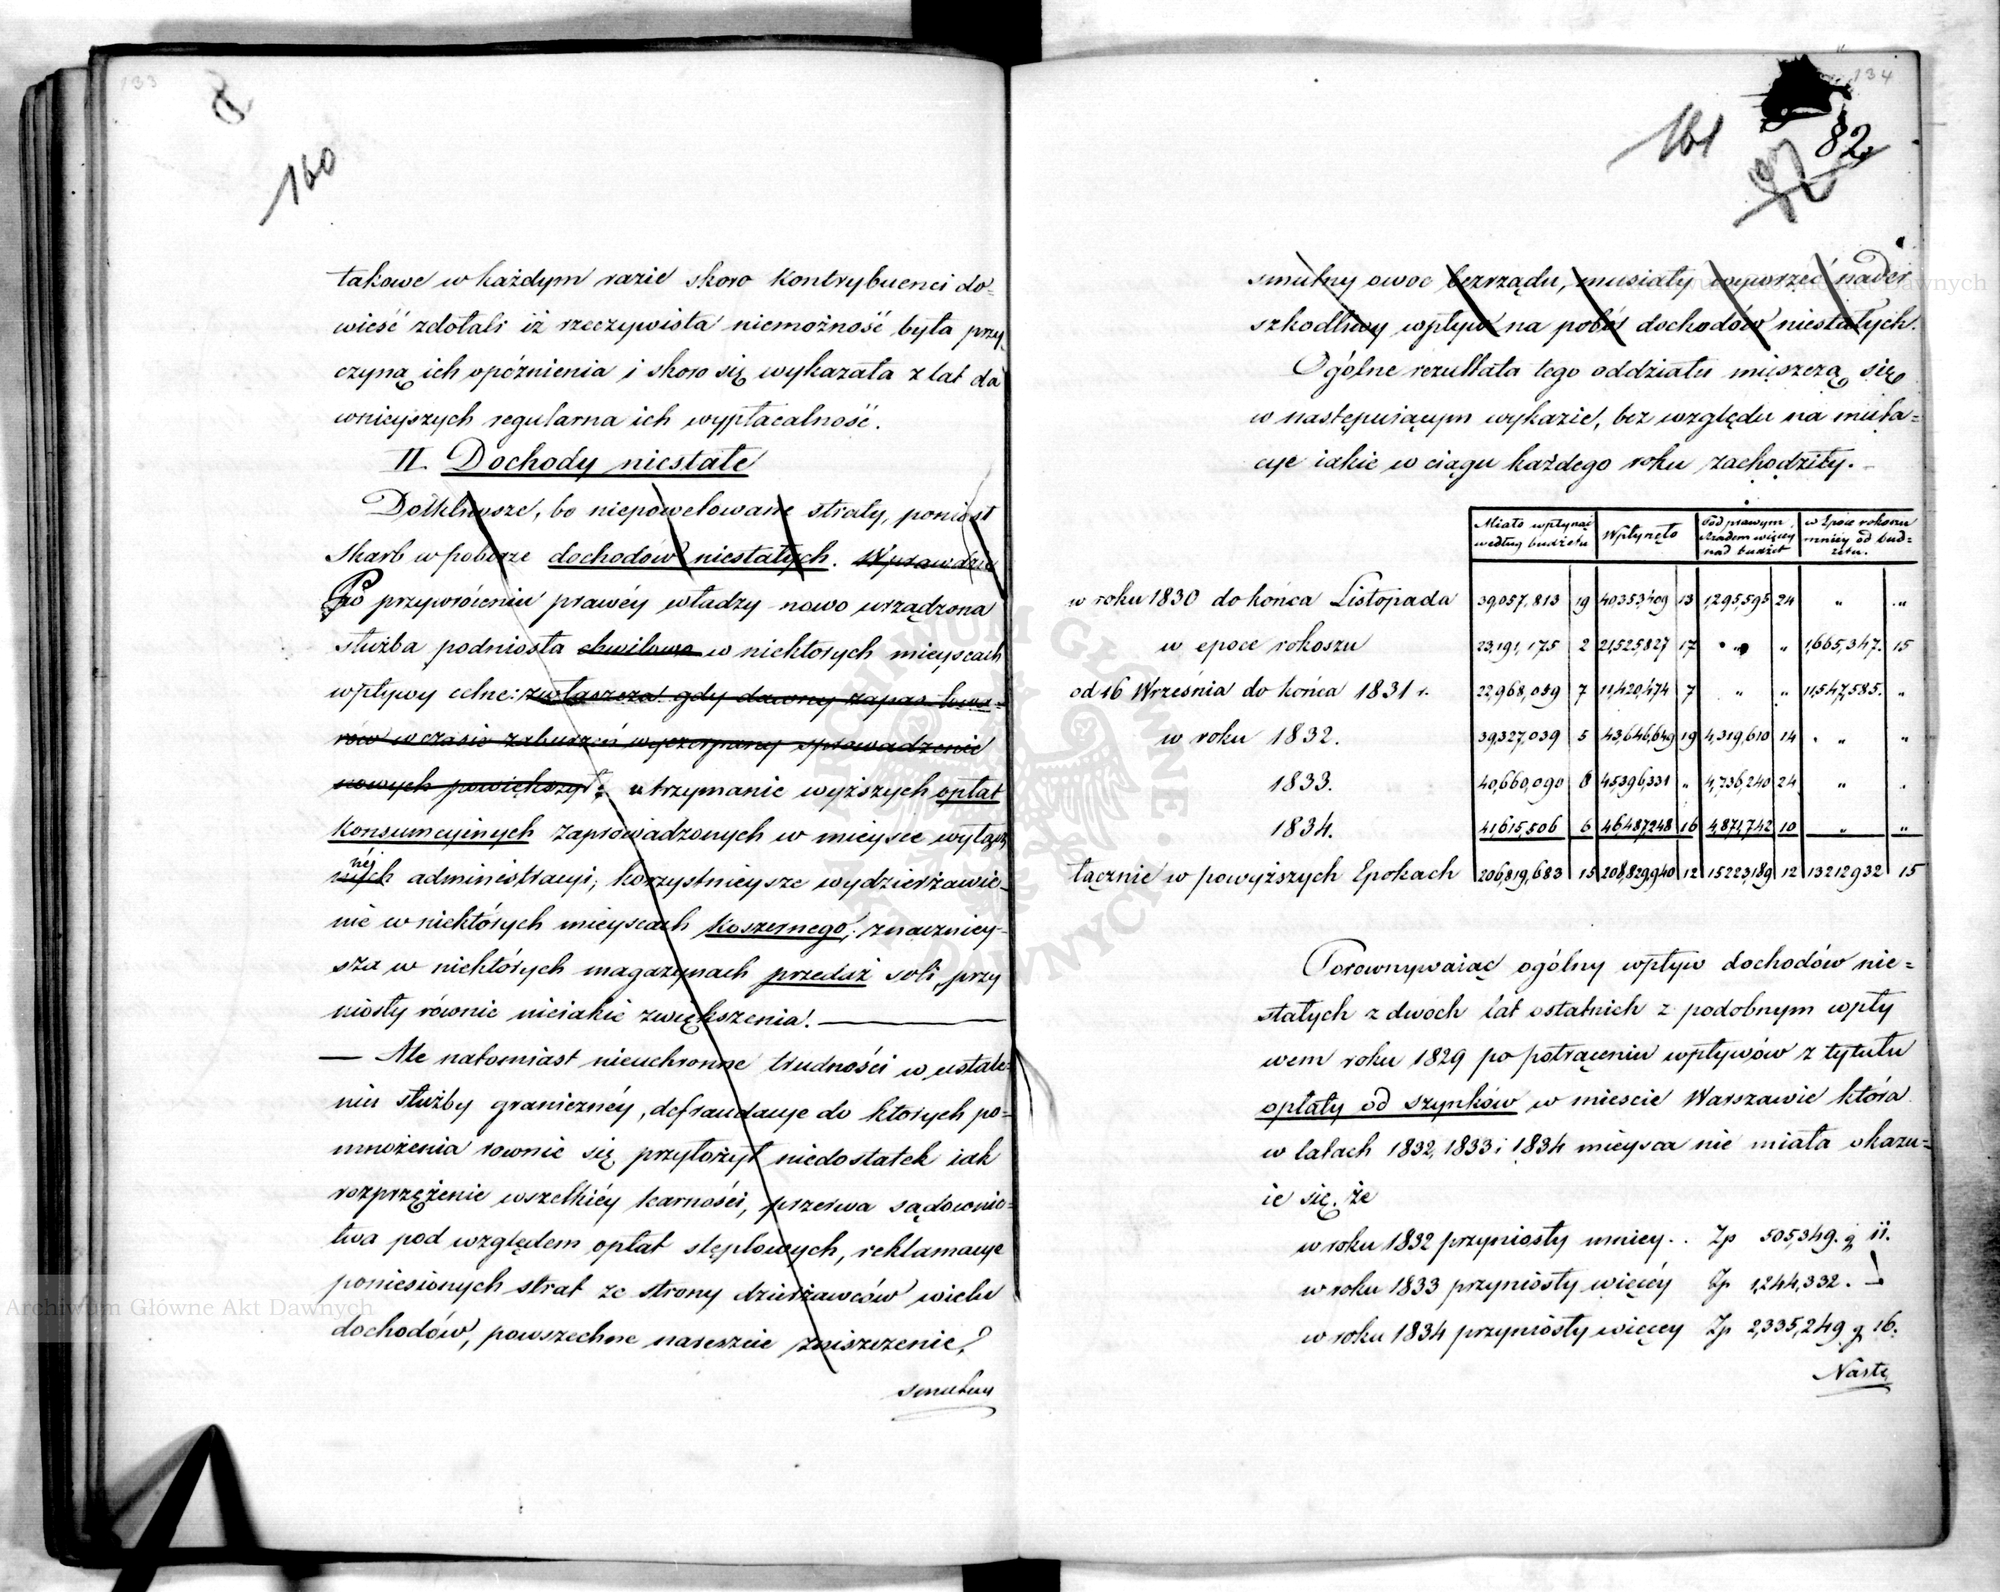 133
160
takowe w każdym razie skoro Kontrybuenci do=
wieść zdołali iż rzeczywista niemożność była przy
czyną ich opóźnienia i skoro się wykazała z lat da
wnieyszych regularna ich wypłacalność.
II. Dochody niestałe
Dotkliwsze, bo niepowetowane straty, poniósł
Skarb w poborze dochodów niestałych. Wprawdzie
Po przywróceniu prawéy władzy nowo urządzona
służba podniosła chwilowo w niektorych mieyscach
wpływy celne: zwłaszcza gdy dawny zapas towa=
rów w czasie zaburzeń wyczerpany sprowadzenie
nowych powiększył; utrzymanie wyższych opłat
Konsumcyinych zaprowadzonych w mieysce wyłącz
nych néj administracyi; korzystnieysze wydzierżawie=
nie w niektórych mieyscach Koszernego; znaczniey=
sza w niektórych magazynach przedaż soli, przy
niosły równie nieiakie zwiększenia.
— Ale natomiast nieuchronne trudności w ustale=
niu służby granicznéy, defraudacye do ktorych po=
mnożenia rownie się przyłożył niedostatek iak
rozprzężenie wszelkiéy karności, przerwa sądownic=
twa pod względem opłat stęplowych, reklamacye
poniesionych strat ze strony dzierżawców wielu
dochodów, powszechne nareszcie zniszczenie,
smutny
134
161
82
smutny owoc bezrządu, musiały wywrzeć nader
szkodliwy wpływ na pobór dochodów niestałych.
Ogólne rezultata tego oddziału mieszczą się
w następuiącym wykazie, bez względu na muta=
cye iakie w ciągu każdego roku zachodziły.
Miało wpłynąć według budżetu | Wpłynęło | Pod prawym Rządem więcey nad budżet | w Epoce rokoszu mniey od bud=żetu.
w roku 1830 do końca Listopada 39,057,813 19 40,353,409 13 1,295,595 24 " "
w epoce rokoszu 23,191,175 2 21,525,827 17 " " 1,665,347. 15
od 16 Września do końca 1831 r. 22,968,059 7 11,420,474 7 " " 11,547,585. "
w roku 1832. 39,327,039 5 43,646,649 19 4,319,610 14 " "
1833. 40,660,090 8 45,396,331 " 4,736,240 24 "
1834. 41,615,506 6 46,487,248 16 4,871,742 10 " "
łącznie w powyższych Epokach 206,819,683 15 208,829,940 12 15223,189 12 13212932 15
Porownywaiąc ogólny wpływ dochodów nie=
stałych z dwóch lat ostatnich z podobnym wpły
wem roku 1829 po potrąceniu wpływów z tytułu
opłaty od szynków w mieście Warszawie która
w latach 1832, 1833 i 1834 mieysca nie miała okazu=
ie się, że
w roku 1832 przyniosły mniey .. Zp 505,349. g 11.
w roku 1833 przyniosły więcéy Zp 1,244,332. —
w roku 1834 przyniosły więcey Zp 2,335,249 g 16.
Nastę
Archiwum Główne Akt Dawnych